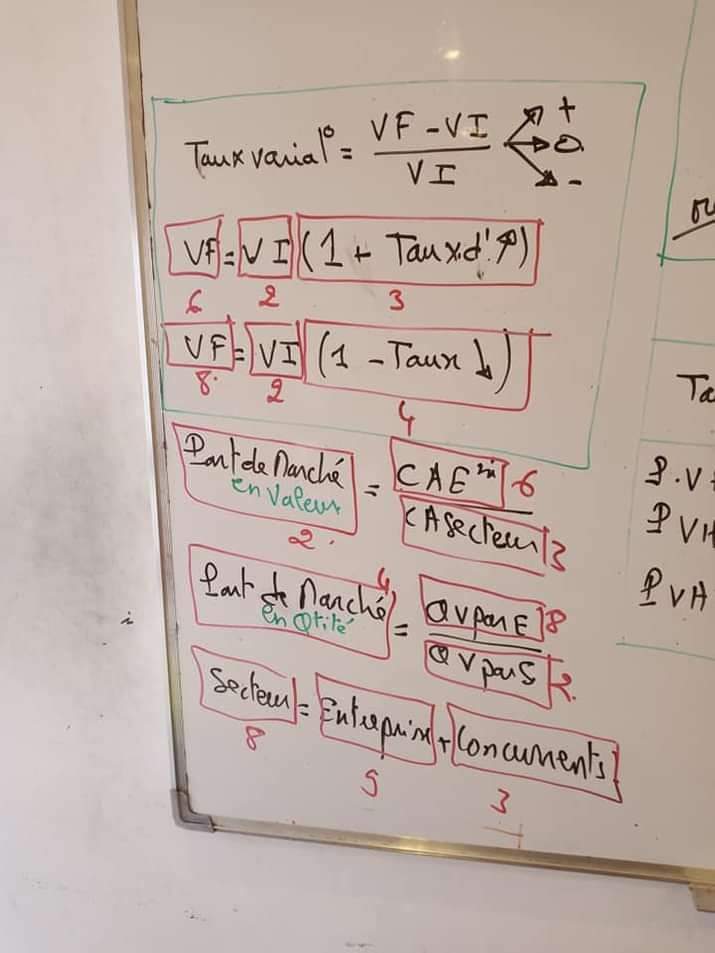 Taux variat° = VF - VI / VI + 0 -
VF = VI (1 + Taux d'↗)
6 2 3
VF = VI (1 - Taux ↘)
8 2 4
Part de Marché en Valeur = CAE / CA Secteur
2 6 3
Part de Marché en Qtité = QV par E / QV par S
4 8 2
Secteur = Entreprise + Concurrents
8 5 3
ou
Ta
P.V
P VH
P VA